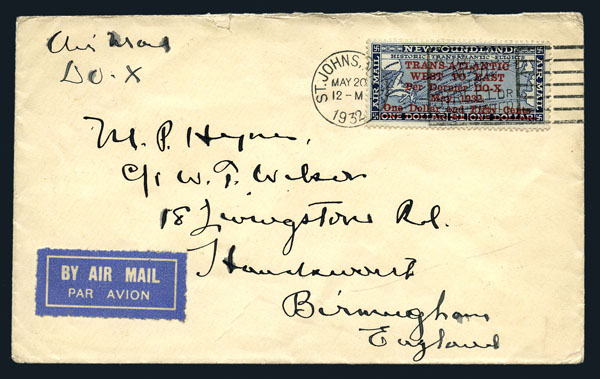 Air Mail
DO-X
ST. JOHN'S,
MAY 20
12-M
1932
NEWFOUNDLAND
HISTORIC TRANSATLANTIC FLIGHTS
AIR MAIL
AIR MAIL
TRANS-ATLANTIC
WEST TO EAST
Per Dornier DO-X
May, 1932.
One Dollar and Fifty Cents
ONE DOLLAR
ONE DOLLAR
M. P. Haynes,
C/o W. T. Wilson
18 Livingstone Rd.
Handsworth
Birmingham
England
BY AIR MAIL
PAR AVION